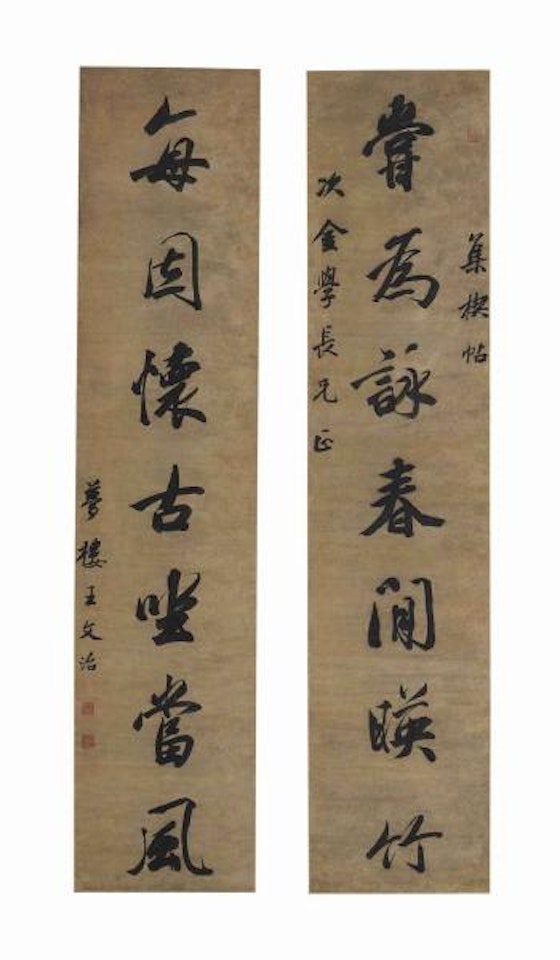 集楔帖
嘗為詠春閒暎竹
次金學長兄正
每因懷古坐當風
夢樓王文治